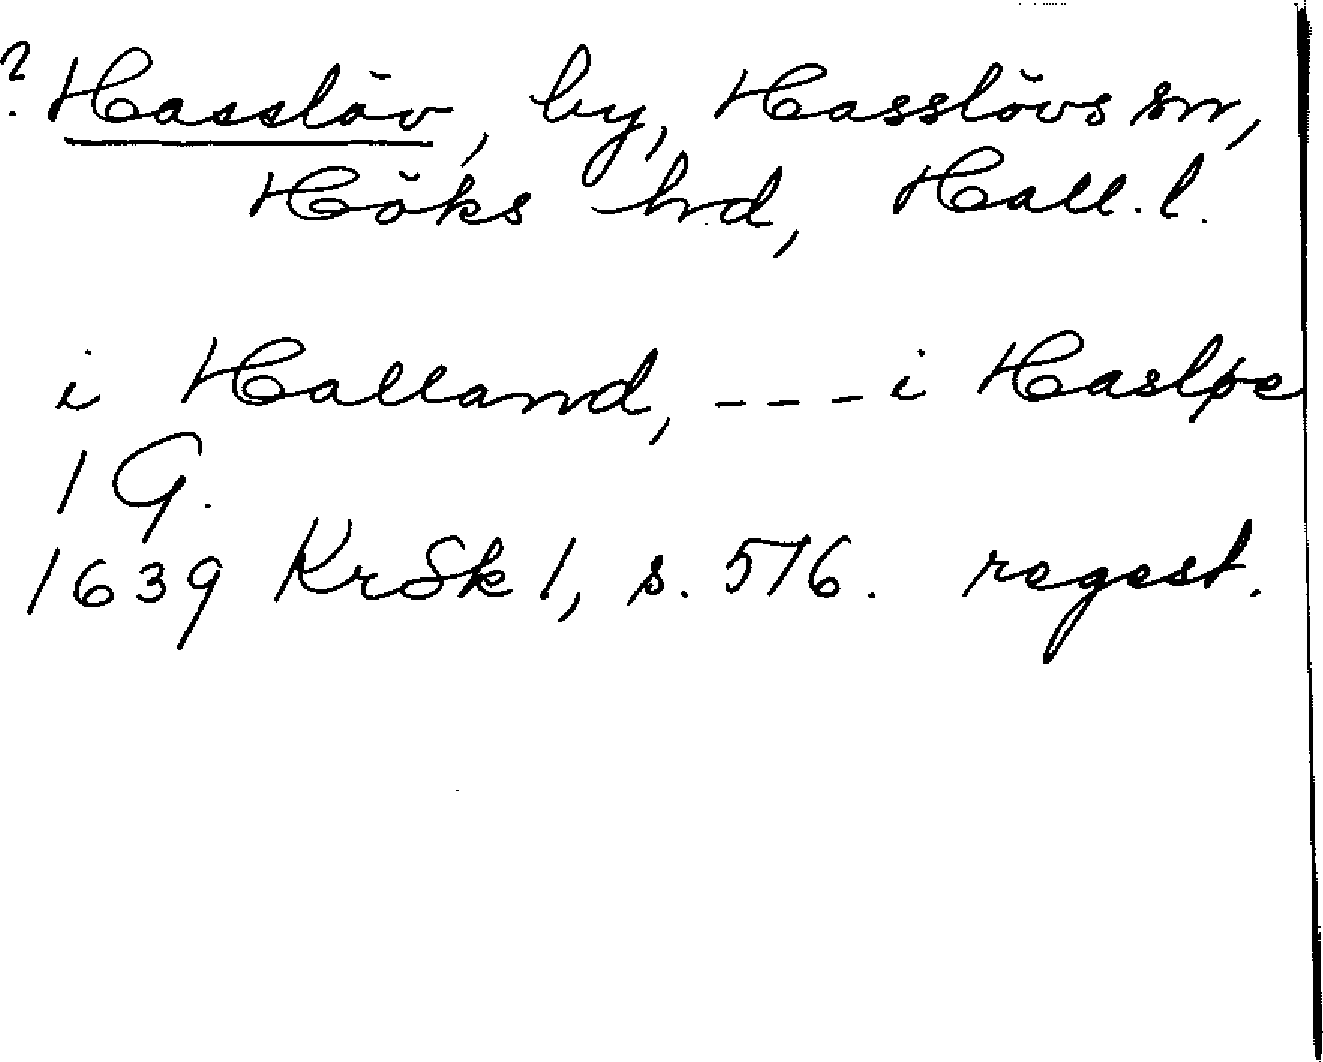 ? Hasslöv, by, Hasslövs sn,
Höks hd, Hall. l.
i Halland, --- i Hasløe
1 G.
1639 KrSk 1, s. 516. regest.